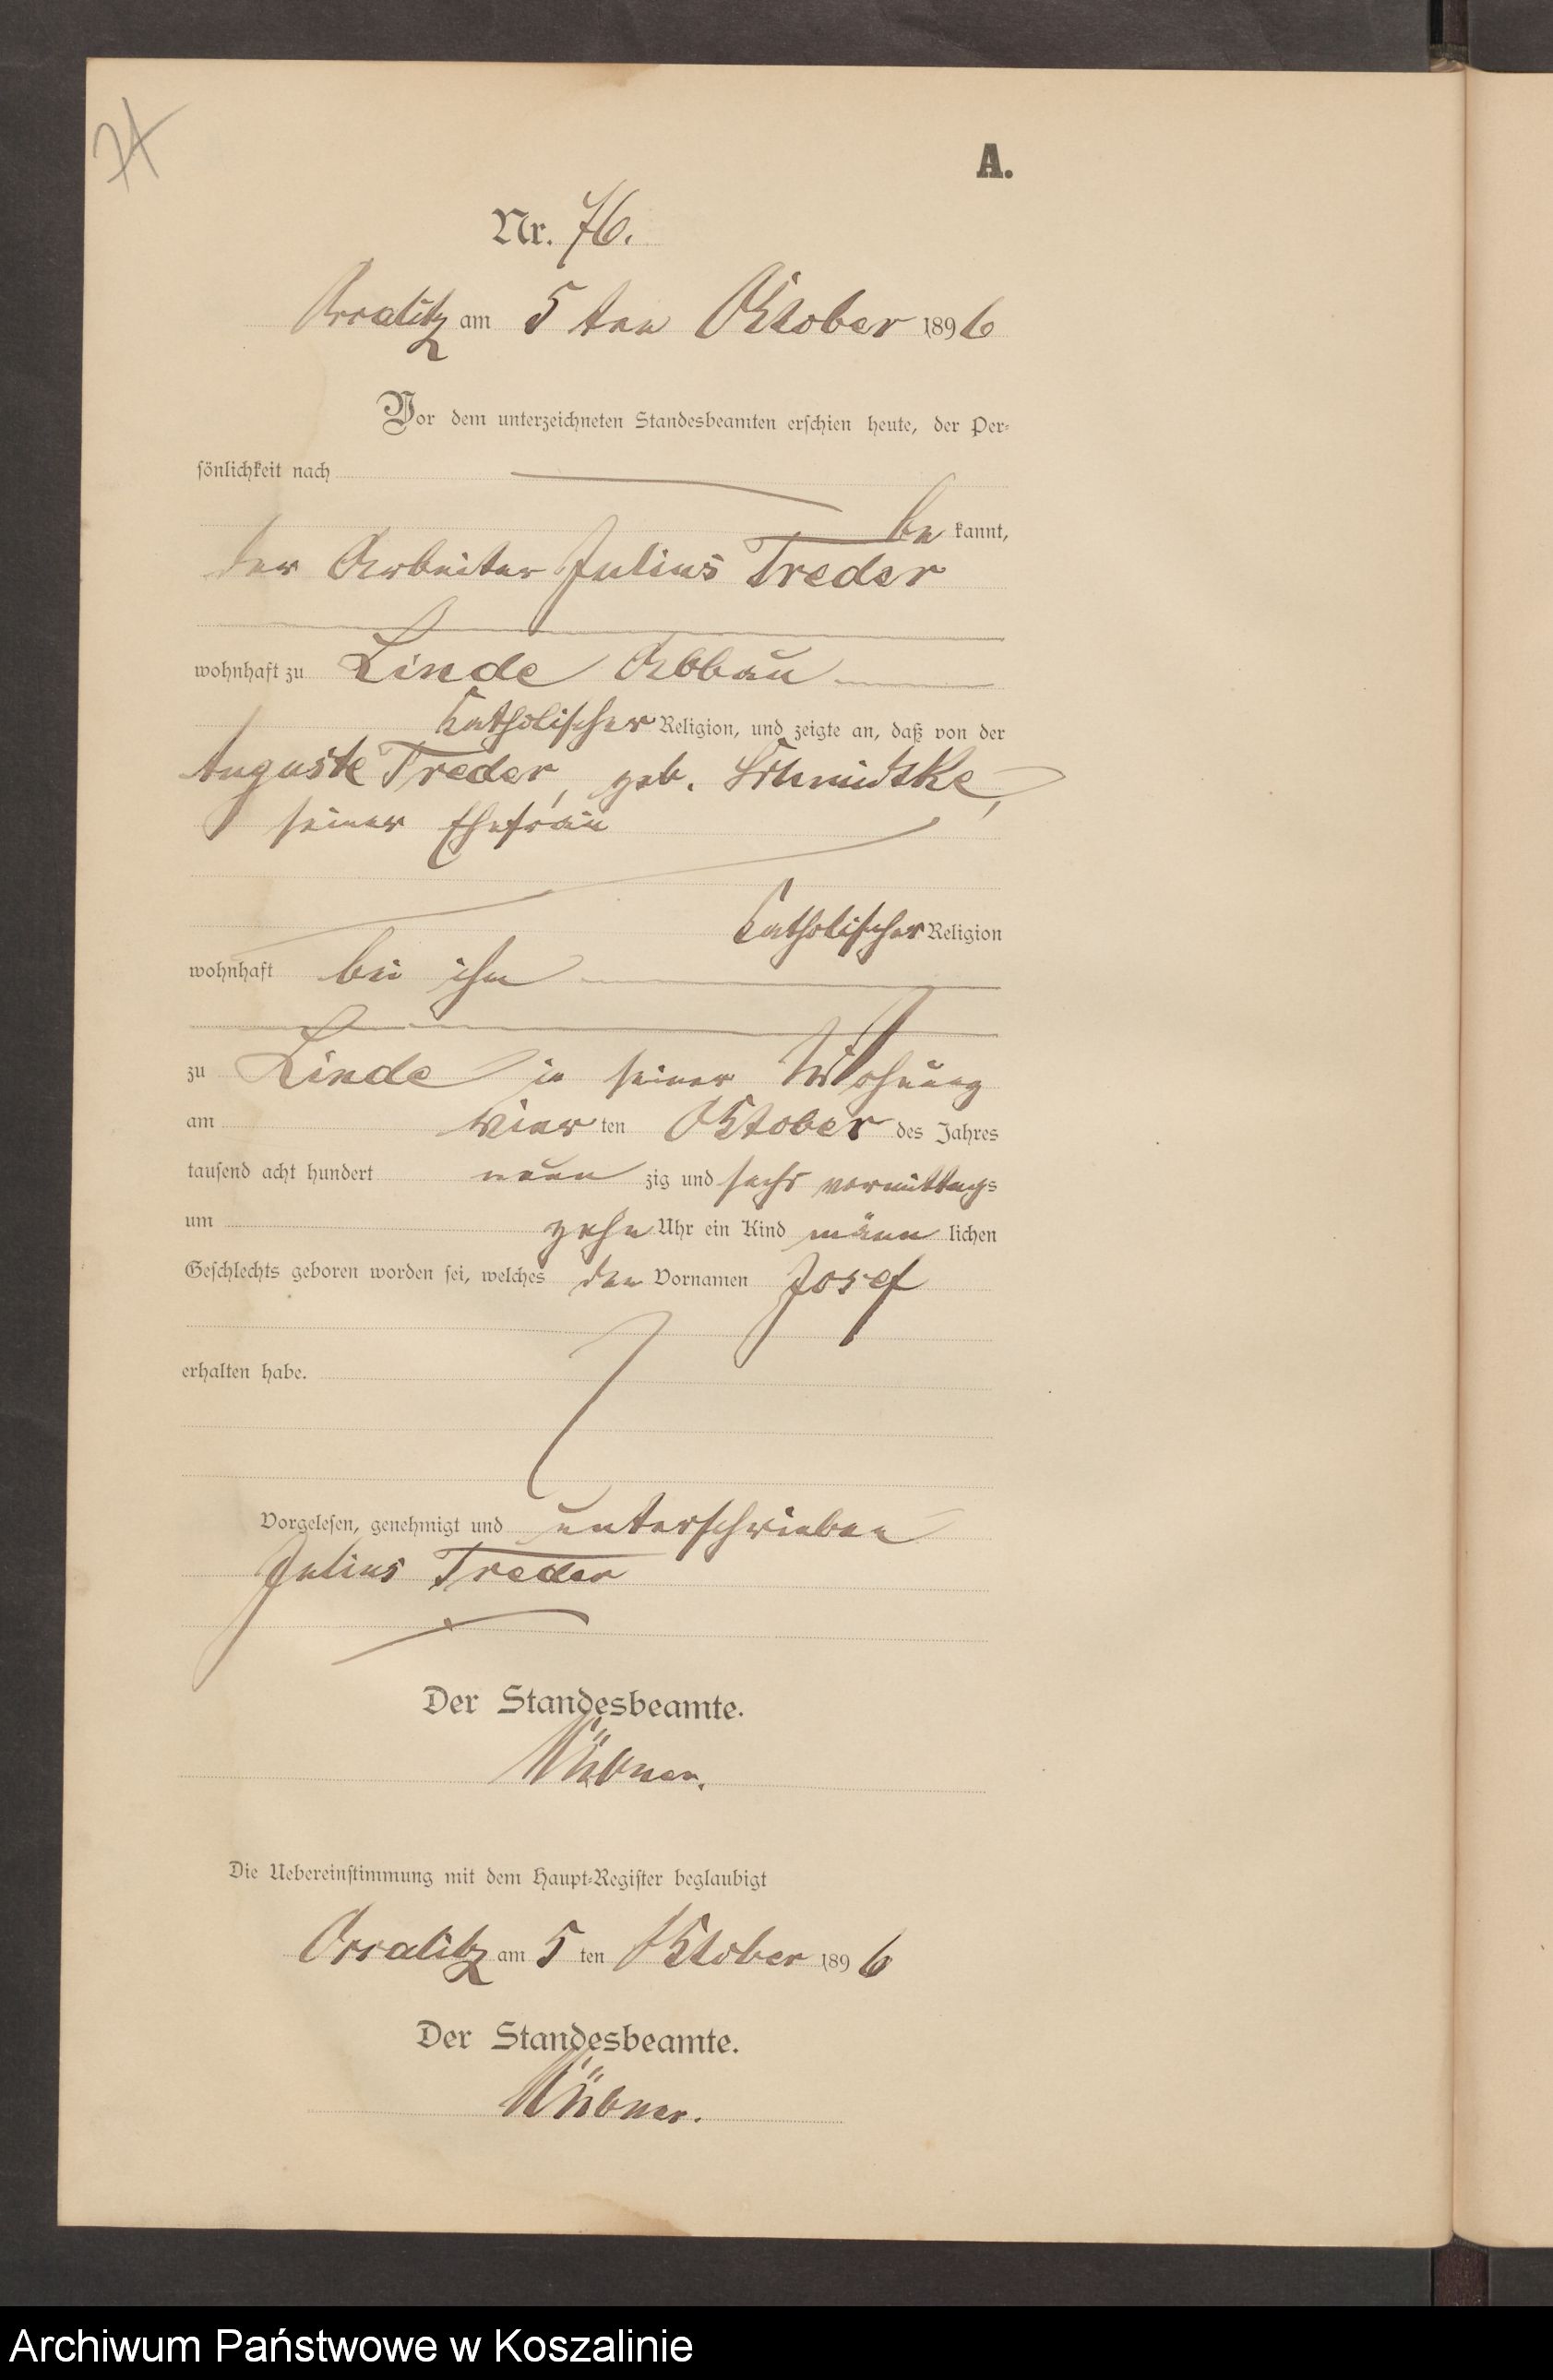 74
A.
Nr. 76.
am 5 ten Oktober 1896
Vor dem unterzeichneten Standesbeamten erschien heute, der Per-
sönlichkeit nach
be kannt,
der Arbeiter Julius Treder
wohnhaft zu Linde Abbau
katholischer Religion, und zeigte an, daß von der
Auguste Treder, geb. Schmidtke,
seiner Ehefrau
katholischer Religion
wohnhaft bei ihm
zu Linde in seiner Wohnung
am vierten Oktober des Jahres
tausend acht hundert neunzig und sechs vormittags
um zehn Uhr ein Kind männlichen
Geschlechts geboren worden sei, welches den Vornamen Josef
erhalten habe.
Vorgelesen, genehmigt und unterschrieben
Julius Treder
Der Standesbeamte.
Die Uebereinstimmung mit dem Haupt-Register beglaubigt
am 5 ten Oktober 1896
Der Standesbeamte.
Archiwum Państwowe w Koszalinie